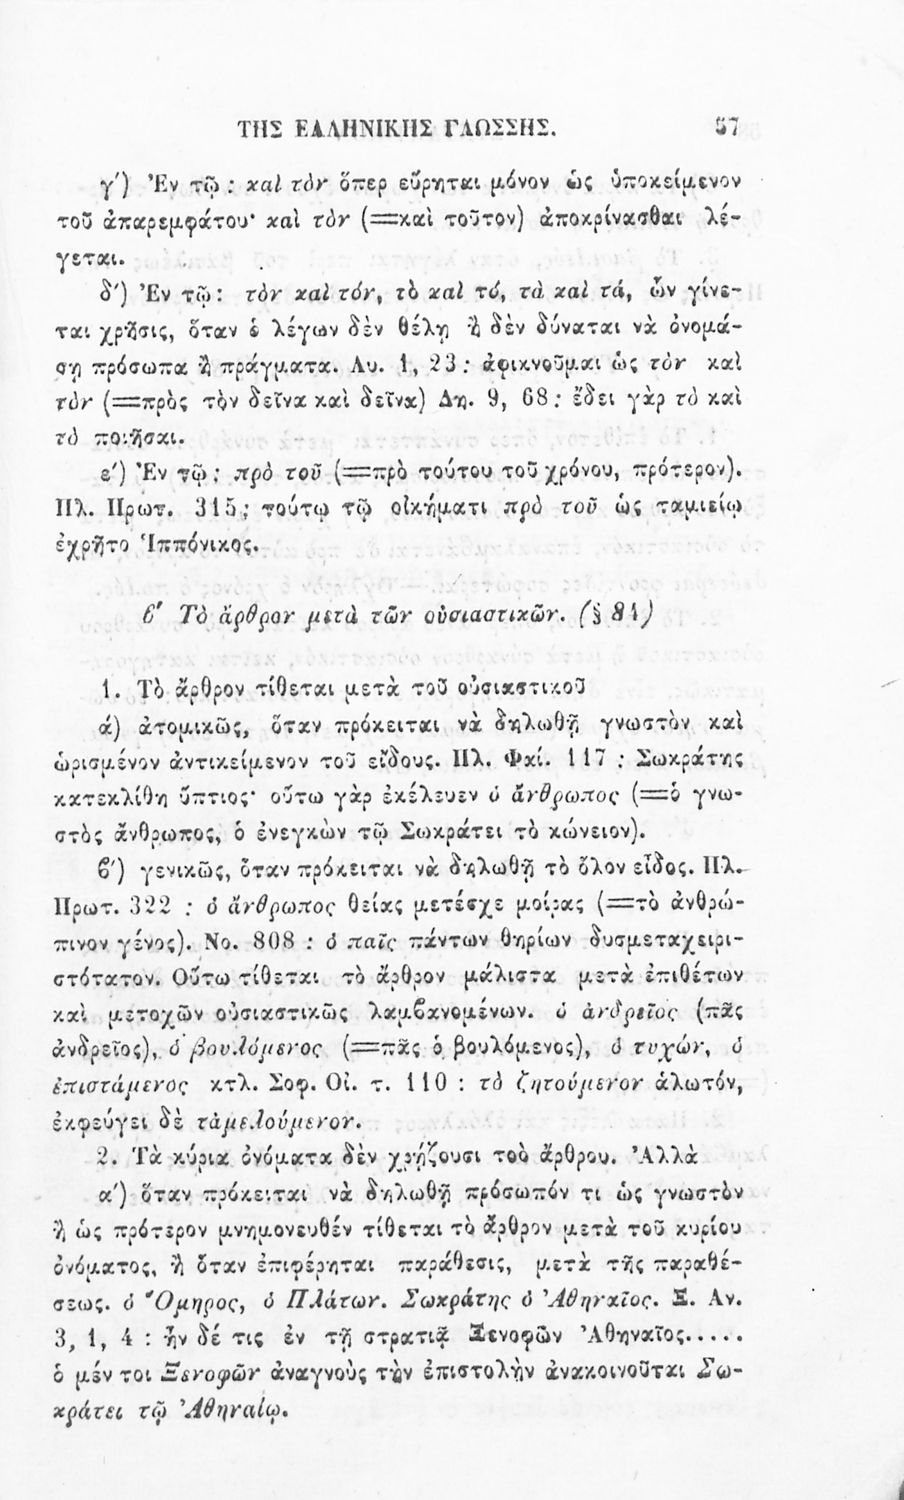 ΤΗΣ ΕΛΛΗΝΙΚΗΣ ΓΛΩΣΣΗΣ. 57
γ') Ἐν τῷ: καὶ τὸν ὅπερ εὕρηται μόνον ὡς ὑποκείμενον
τοῦ ἀπαρεμφάτου· καὶ τὸν (=καὶ τοῦτον) ἀποκρίνασθαι λέ-
γεται.
δ') Ἐν τῷ: τὸν καὶ τόν, τὸ καὶ τό, τὰ καὶ τά, ὧν γίνε-
ται χρῆσις, ὅταν ὁ λέγων δὲν θέλῃ ἢ δὲν δύναται νὰ ὀνομά-
σῃ πρόσωπα ἢ πράγματα. Λυ. 1, 23: ἀφικνοῦμαι ὡς τὸν καὶ
τὸν (=πρὸς τὸν δεῖνα καὶ δεῖνα) Δη. 9, 68: ἔδει γὰρ τὸ καὶ
τὸ ποιῆσαι.
ε') Ἐν τῷ: πρὸ τοῦ (=πρὸ τούτου τοῦ χρόνου, πρότερον).
Πλ. Πρωτ. 315: τούτῳ τῷ οἰκήματι πρὸ τοῦ ὡς ταμιείῳ
ἐχρῆτο Ἱππόνικος.
ϐ' Τὸ ἄρθρον μετὰ τῶν οὐσιαστικῶν. (§ 84)
1. Τὸ ἄρθρον τίθεται μετὰ τοῦ οὐσιαστικοῦ
ά) ἀτομικῶς, ὅταν πρόκειται νὰ δηλωθῇ γνωστὸν καὶ
ὡρισμένον ἀντικείμενον τοῦ εἴδους. Πλ. Φαί. 117 : Σωκράτης
κατεκλίθη ὕπτιος· οὕτω γὰρ ἐκέλευεν ὁ ἄνθρωπος (=ὁ γνω-
στὸς ἄνθρωπος, ὁ ἐνεγκὼν τῷ Σωκράτει τὸ κώνειον).
ϐ') γενικῶς, ὅταν πρόκειται νὰ δηλωθῇ τὸ ὅλον εἶδος. Πλ.
Πρωτ. 322 : ὁ ἄνθρωπος θείας μετέσχε μοίρας (=τὸ ἀνθρώ-
πινον γένος). Νο. 808 : ὁ παῖς πάντων θηρίων δυσμεταχειρι-
στότατον. Οὕτω τίθεται τὸ ἄρθρον μάλιστα μετὰ ἐπιθέτων
καὶ μετοχῶν οὐσιαστικῶς λαμϐανομένων. ὁ ἀνδρεῖος (πᾶς
ἀνδρεῖος), ὁ βουλόμενος (=πᾶς ὁ βουλόμενος), ὁ τυχών, ὁ
ἐπιστάμενος κτλ. Σοφ. Οἰ. τ. 110 : τὸ ζητούμενον ἁλωτόν,
ἐκφεύγει δὲ τἀμελούμενον.
2. Τὰ κύρια ὀνόματα δὲν χρῄζουσι τοῦ ἄρθρου. Ἀλλὰ
α') ὅταν πρόκειται νὰ δηλωθῇ πρόσωπόν τι ὡς γνωστὸν
ἢ ὡς πρότερον μνημονευθέν τίθεται τὸ ἄρθρον μετὰ τοῦ κυρίου
ὀνόματος, ἢ ὅταν ἐπιφέρηται παράθεσις, μετὰ τῆς παραθέ-
σεως. ὁ Ὅμηρος, ὁ Πλάτων. Σωκράτης ὁ Ἀθηναῖος. Ξ. Αν.
3, 1, 4 : ἦν δέ τις ἐν τῇ στρατιᾷ Ξενοφῶν Ἀθηναῖος.....
ὁ μέν τοι Ξενοφῶν ἀναγνοὺς τὴν ἐπιστολὴν ἀνακοινοῦται Σω-
κράτει τῷ Ἀθηναίῳ.